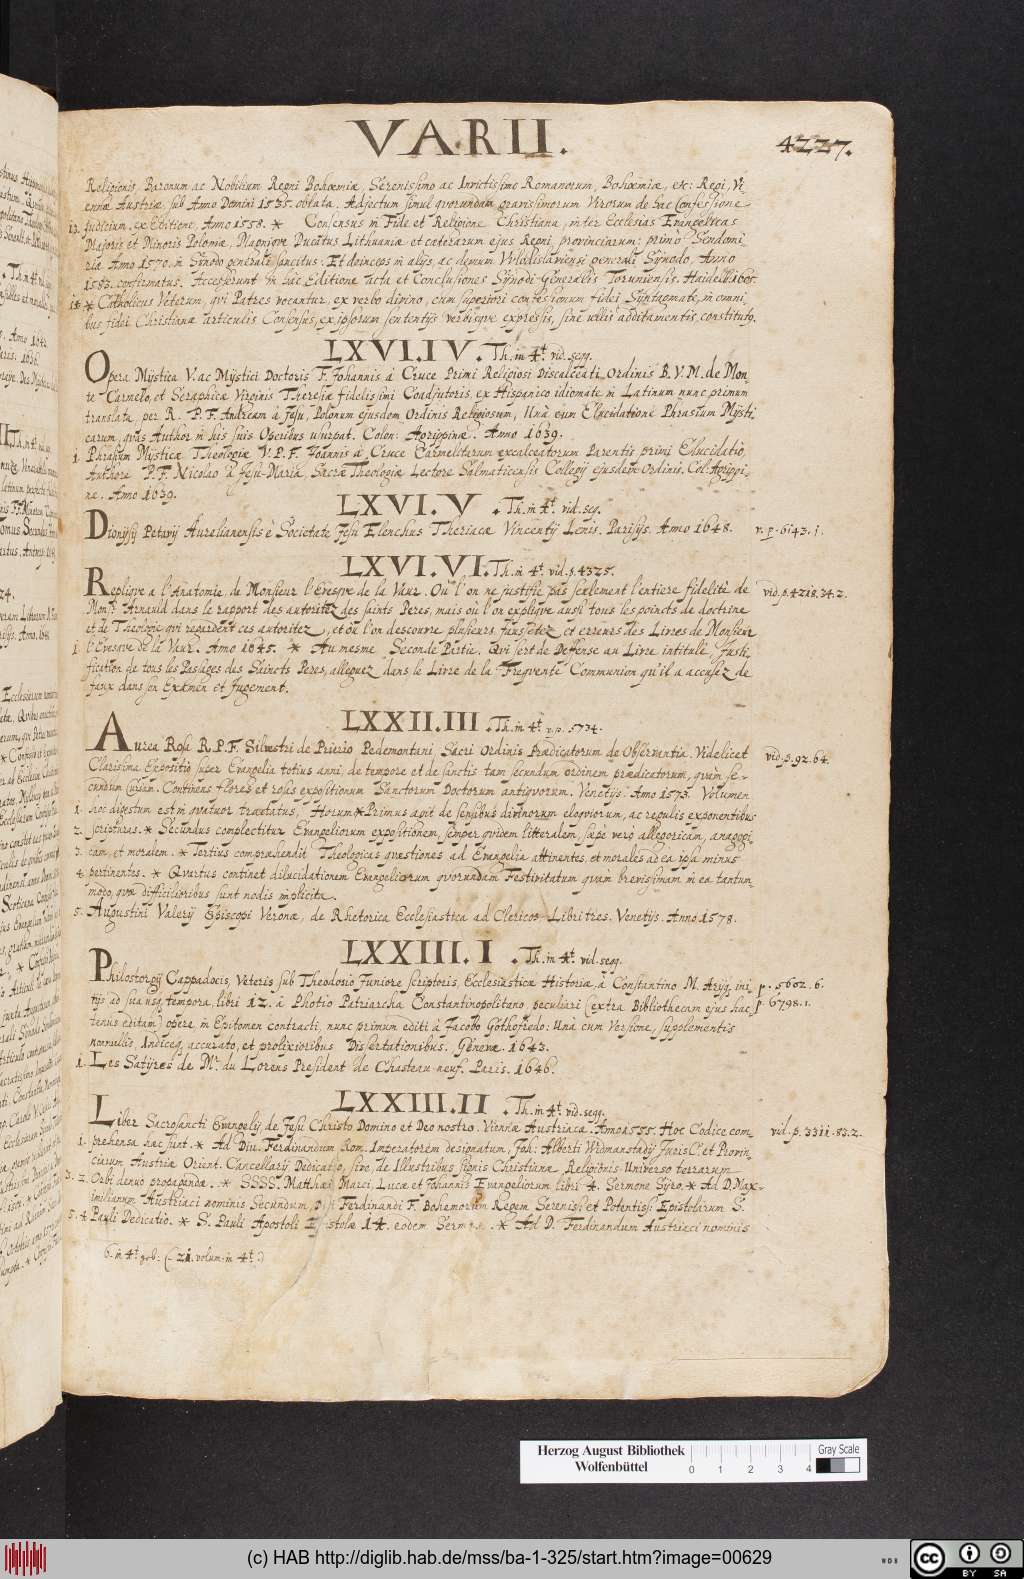 VARII.
4227.
Religionis, Baronum ac Nobilium Regni Bohœmiæ, Serenissimo ac Invictissimo Romanorum, Bohœmiæ, etc: Regi, Vi
ennæ Austriæ sub Anno Domini 1535. oblata. Adjectum simul quorundam gravissimorum Virorum de hac Confessione
13. judicium, ex Editione, Anno 1558. * Consensus in Fide et Religione Christiana, inter Ecclesias Evangelicas
Majoris et Minoris Poloniæ, Magnique Ducatus Lithuaniæ et cæterarum ejus Regni provinciarum: primo Sendomi
riæ Anno 1570. in Synodo generali sancitus. Et deinceps in alijs, ac demum Wlodislaviensi generali Synodo, Anno
1583. confirmatus. Accesserunt in hac Editione acta et Conclusiones Synodi Generalis Toruniensis. Haidelb. 1605.
14. * Catholicus Veterum, qui Patres vocantur, ex verbo divino, cum superiori confessionum fidei Syntagmate, in omni
bus fidei Christianæ articulis Consensus, ex ipsorum sententijs verbisque expressis, sine ullis additamentis, constitutq.
LXVI.IV. Th. in 4t. vid. seqq.
Opera Mystica V. ac Mystici Doctoris F. Johannis à Cruce Primi Religiosi Discalceati Ordinis B.V.M. de Mon-
te Carmelo, et Seraphicæ Virginis Tharesiæ fidelissimi Coadjutoris, ex Hispanico idiomate in Latinum nunc primum
translata, per R. P.F. Andream à Jesu, Polonum ejusdem Ordinis Religiosum, Unà cum Elucidatione Phrasium Mysti
carum, quas Author in his suis Operibus usurpat. Colon: Agrippinæ. Anno 1639.
1. Phrasium Mysticæ Theologiæ V.P.F. Joannis à Cruce Carmelitarum excalceatorum Parentis primi Elucidatio,
Authore P.F. Nicolao à Jesu-Maria, Sacræ Theologiæ Lectore Salmaticensis Collegij ejusdem Ordinis. Col. Agrippi-
næ. Anno 1639.
LXVI.V. Th. in 4t. vid. seq.
Dionysij Petavij Aurelianensis è Societate Jesu Elenchus Theriacæ Vincentij Lenis. Parisijs. Anno 1648. v. p. 6143. 1.
LXVI.VI. Th. in 4t. vid. p. 4325.
Replique a l'Anatomie de Monsieur l'Evesque de la Vaur. Où l'on ne justifie pas seulement l'entiere fidelité de vid. p. 4218. 34. 2.
Monsr. Arnauld dans le rapport des autoritez des saints Peres, mais où l'on explique aussi tous les poincts de doctrine
et de Theologie qui regardent ces autoritez, et où l'on descouvre plusieurs faussetez et erreurs des Livres de Monsieur
1. l'Evesque de la Vaur. Anno 1645. * Au mesme Seconde Partie. Qui sert de Deffense au Livre intitulé, Justi-
fication de tous les Passages des Saincts Peres, alleguez dans le Livre de la Frequente Communion qu'il a accusez de
faux dans son Examen et Jugement.
LXXII.III. Th. in 4t. v. p. 5734.
Aurea Rosa R.P.F. Silvestri de Prierio Pedemontani Sacri Ordinis Prædicatorum de Observantia. Videlicet vid. p. 92. 64.
Clarissima Expositio super Evangelia totius anni, de tempore et de sanctis tam secundum ordinem prædicatorum, quàm se-
cundum curiam. Continens flores et rosas expositionum Sanctorum Doctorum antiquorum. Venetijs. Anno 1573. Volumen
1. hoc digestum est in quatuor tractatus, Horum * Primus agit de sensibus divinorum eloquiorum, ac regulis exponentibus
2. scripturas. * Secundus complectitur Evangeliorum expositionem, semper quidem litteralem, sæpe verò allegoricam, anagogi
3. cam, et moralem. * Tertius comprehendit Theologicas quæstiones ad Evangelia attinentes, et morales ad ea ipsa minus
4. pertinentes. * Quartus continet dilucidationem Evangeliorum quorundam Festivitatum quàm brevissimam in ea tantum-
modo, quæ difficilioribus sunt nodis implicita.
5. Augustini Valerij Episcopi Veronæ, de Rhetorica Ecclesiastica ad Clericos, Libri tres. Venetijs. Anno 1578.
LXXIII.I. Th. in 4t. vid. seqq.
Philostorgij Cappadocis, Veteris sub Theodosio Juniore scriptoris, Ecclesiasticæ Historiæ, à Constantino M. Arijq. ini p. 5602. 6.
tijs ad sua usq tempora, libri 12. à Photio Patriarcha Constantinopolitano, peculiari (extra Bibliothecam ejus hac 6798. 1.
tenus editam) opere in Epitomen contracti, nunc primum editi à Jacobo Gothofredo: Unà cum Versione, supplementis
nonnullis, Indiceq accurato, et prolixioribus Dissertationibus. Genevæ. 1643.
1. Les Satyres de Mr. du Lorens President de Chasteau-neuf. Paris. 1646.
LXXIII.II. Th. in 4t. vid. seqq.
Liber Sacrosancti Evangelij de Jesu Christo Domino et Deo nostro. Viennæ Austriacæ. Anno 1555. Hoc Codice com vid. p. 3311. 83. 2.
1. prehensa hæc sunt. * Ad Div. Ferdinandum Rom. Imperatorem designatum, Joh: Alberti Widmanstadij Jurisc. et Provin-
ciarum Austriæ Orient. Cancellarij Dedicatio, sive, de Illustribus signis Christianæ Religionis Universo terrarum
3. 2. Orbi denuo propagandæ. * SSSS. Matthæi Marci, Lucæ et Johannis Evangeliorum libri 4. Sermone Syro. * Ad D. Max-
imilianum Austriaci nominis Secundum, Divi Ferdinandi F. Bohemorum Regem Sereniss: et Potentiss: Epistolarum S.
5. 4. Pauli Dedicatio. * S. Pauli Apostoli Epistolæ 14. eodem Sermone. * Ad D. Ferdinandum Austriaci nominis
6. in 4t. geb: (21. volum. in 4t.)
Herzog August Bibliothek
Wolfenbüttel
0 1 2 3 4
Gray Scale
(c) HAB http://diglib.hab.de/mss/ba-1-325/start.htm?image=00629
WDB
cc BY SA